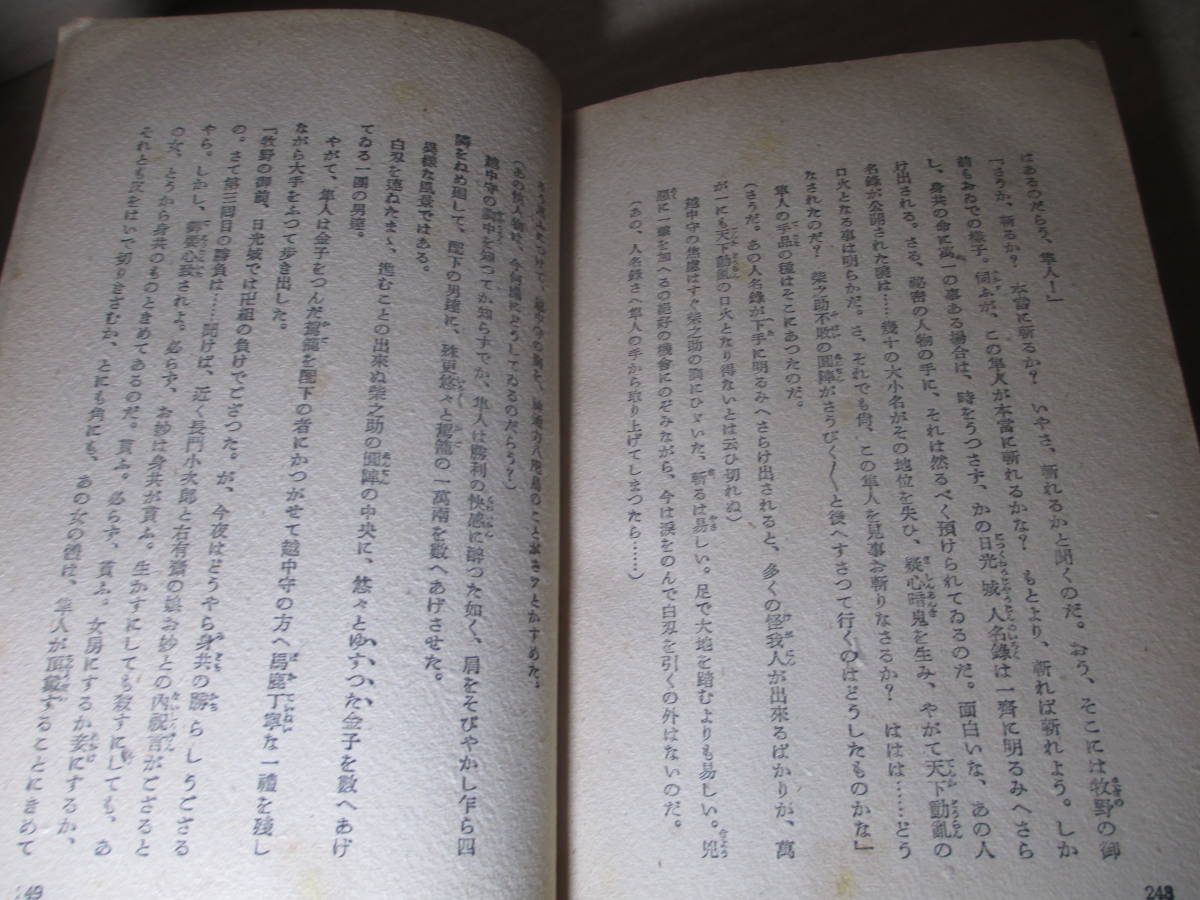 はあるのだらう、隼人！」
「さうか、斬るか？　本當に斬るか？　いやさ、斬れるかと聞くのだ。おう、そこには牧野の御
前もおゐでの樣子。伺ふが、この隼人が本當に斬れるかな？　もとより、斬れば斬れよう。しか
し、身共の命に萬一の事ある場合は、時をうつさず、かの日光城人名錄は一齊に明るみへさら
け出される。さる、秘密の人物の手に、それは然るべく預けられてゐるのだ。面白いな、あの人
名錄が公開された曉は……幾十の大小名がその地位を失ひ、疑心暗鬼を生み、やがて天下動亂の
口火となる事は明らかだ。さ、それでも尙、この隼人を見事お斬りなさるか？　ははは……どう
なされたのだ？　柴之助不敗の圓陣がさうびく／＼と後へすさつて行くのはどうしたものかな」
隼人の手品の種はそこにあつたのだ。
（さうだ。あの人名錄が下手に明るみへさらけ出されると、多くの怪我人が出來るばかりが、萬
が一にも天下動亂の口火となり得ないとは云ひ切れぬ）
越中守の焦慮はすぐ柴之助の胸にひゞいた。斬るは易しい。足で大地を踏むよりも易しい。兇
惡に一撃を加へるの絕好の機會にのぞみながら、今は淚をのんで白刃を引くの外はないのだ。
（あの、人名錄さへ隼人の手から取り上げてしまつたら……）
248
のことがさつとかすめた。
（あの怪人物は、今何處にどうしてゐるのだらう？）
越中守の胸中を知つてか知らずでか、隼人は勝利の快感に醉つた如く、肩をそびやかし乍ら四
隣をねめ廻して、配下の男達に、殊更悠々と駕籠の一萬兩を數へあげさせた。
異樣な風景ではある。
白刃を連ねたまゝ、進むことの出來ぬ柴之助の圓陣の中央に、悠々とゆすつた金子を數へあげ
てゐる一團の男達。
やがて、隼人は金子をつんだ駕籠を配下の者にかつがせて越中守の方へ馬鹿丁寧な一禮を殘し
ながら大手をふつて步き出した。
「牧野の御前、日光城では卍組の負けでござつた。が、今夜はどうやら身共の勝らしうござる
の。さて第三回目の勝負は……聞けば、近く長門小太郎と右有齋の娘お妙との內祝言がござると
やら。しかし、御要心致されよ。必らず、お妙は身共が貰ふ。生かすにしても殺すにしても、あ
の女、とうから身共のものときめてあるのだ。貰ふ。必らず、貰ふ。女房にするか妾にするか、
それとも皮をはいで切りきざむか、とにも角にも、あの女の體は、隼人が頂戴することにきめて
249